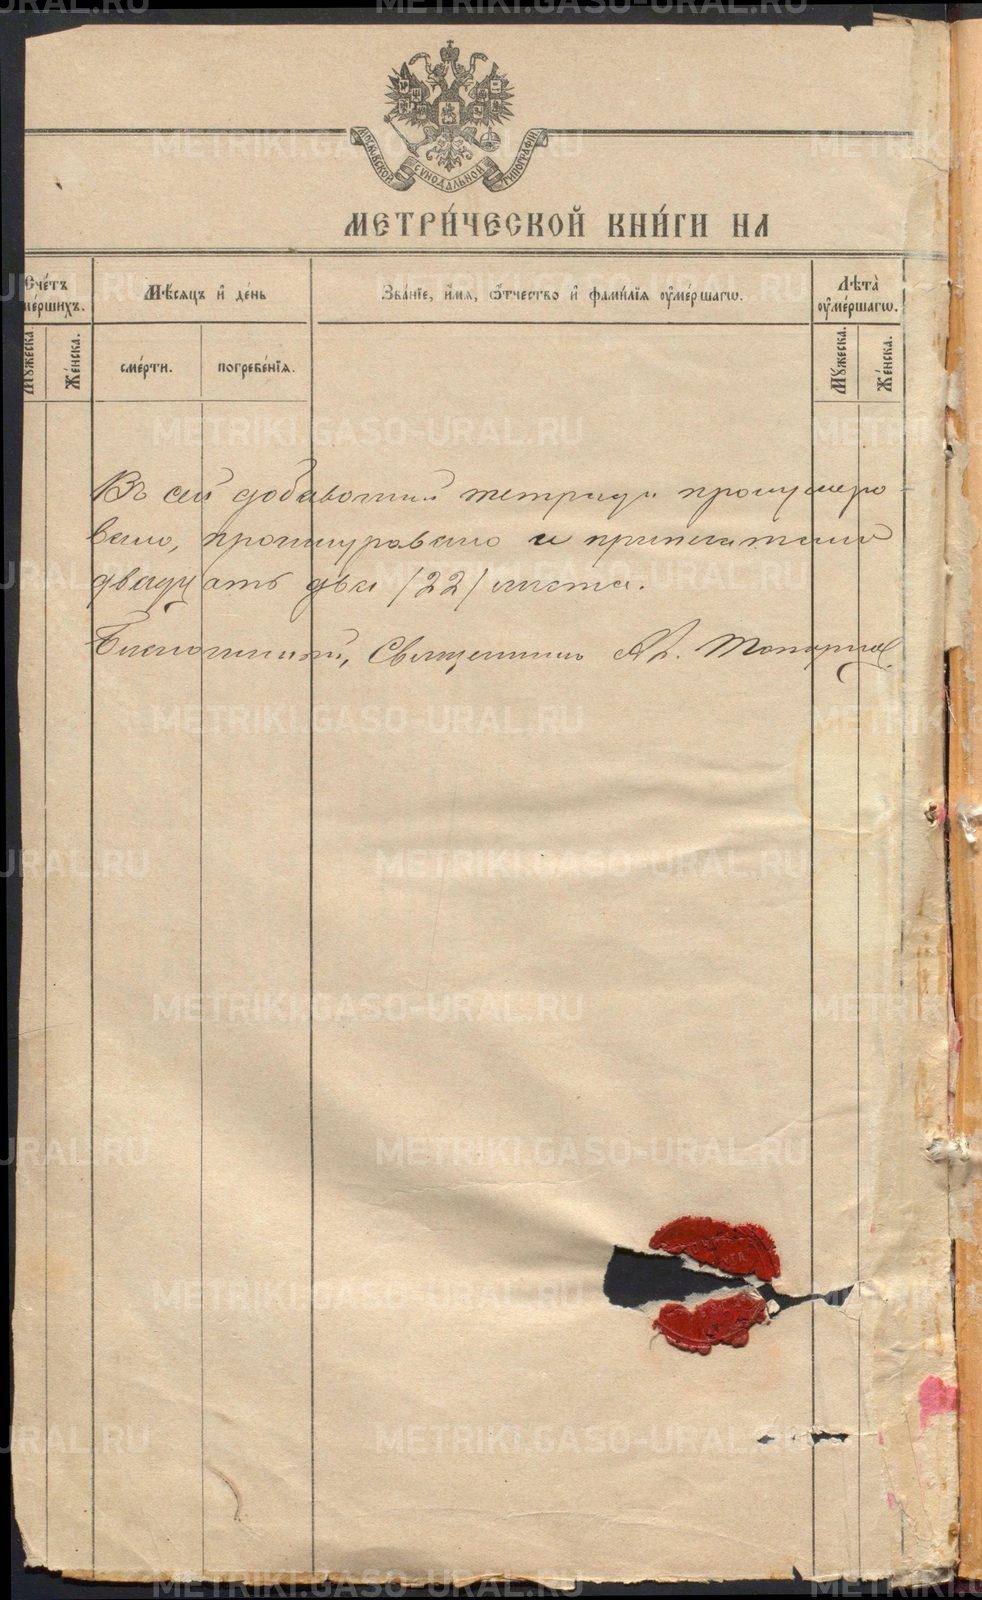 МОСКОВСКОЙ СѴНОДАЛЬНОЙ ТИПОГРАФІИ
МЕТРИ́ЧЕСКОЙ КНИ́ГИ НА
Счéтъ
мéршихъ.
Мѣ́сяцъ и҆ дéнь
Звáнїе, и҆́мя, ѻ҆́тчество и҆ фами́лїя ᲂу҆мéршагѡ.
Лѣ́та
ᲂу҆мéршагѡ.
Мꙋжеска
Жéнска.
смéрти.
погребéнїя.
Мꙋжеска.
Жéнска.
Въ сей добавочной тетради пронумеро-
вано, прошнуровано и припечатано
двадцать два /22/ листа.
Благочинный, Священникъ Ал. Топорков
METRIKI.GASO-URAL.RU